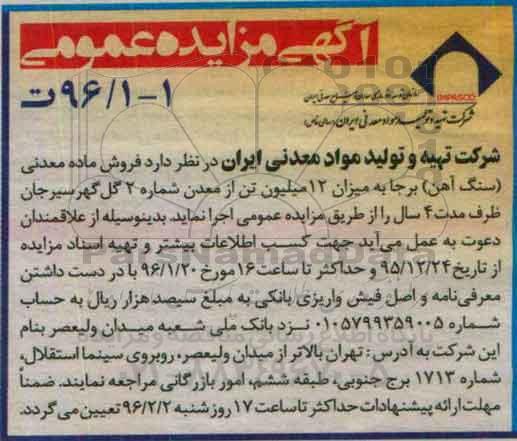 آگهی مزایده عمومی
IMPASCO
شرکت تهیه و تولید مواد معدنی ایران (سهامی خاص)
۹۶/۱-۱ ت
شرکت تهیه و تولید مواد معدنی ایران در نظر دارد فروش ماده معدنی
(سنگ آهن) برجا به میزان ۱۲ میلیون تن از معدن شماره ۲ گل گهر سیرجان
ظرف مدت ۴ سال را از طریق مزایده عمومی اجرا نماید. بدینوسیله از علاقمندان
دعوت به عمل می‌آید جهت کسب اطلاعات بیشتر و تهیه اسناد مزایده
از تاریخ ۹۵/۱۲/۲۴ و حداکثر تا ساعت ۱۶ مورخ ۹۶/۱/۲۰ با در دست داشتن
معرفی‌نامه و اصل فیش واریزی بانکی به مبلغ سیصد هزار ریال به حساب
شماره ۰۱۰۵۷۹۹۳۵۹۰۰۵ نزد بانک ملی شعبه میدان ولیعصر بنام
این شرکت به آدرس: تهران بالاتر از میدان ولیعصر، روبروی سینما استقلال،
شماره ۱۷۱۳ برج جنوبی، طبقه ششم، امور بازرگانی مراجعه نمایند. ضمناً
مهلت ارائه پیشنهادات حداکثر تا ساعت ۱۷ روز شنبه ۹۶/۲/۲ تعیین می گردد.
ParsNamadData